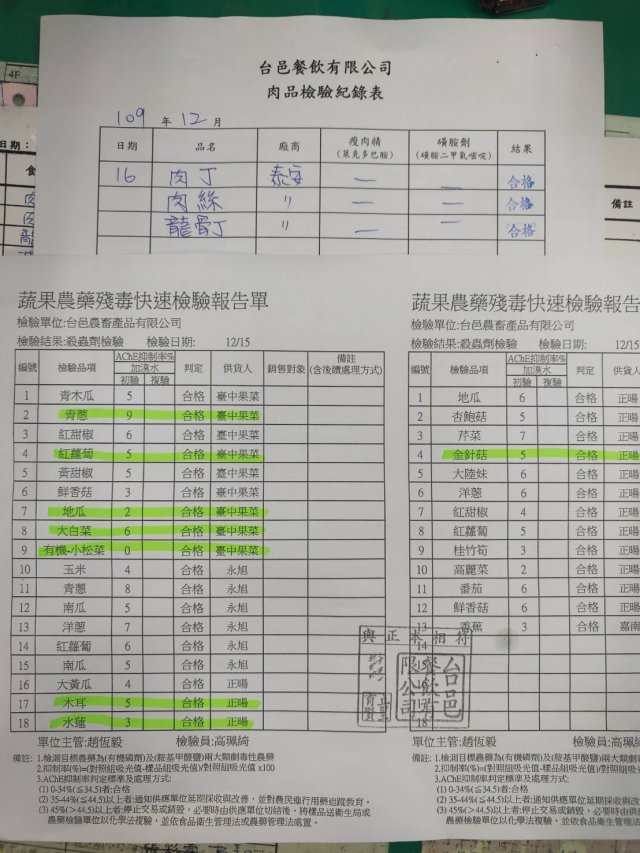 4F
台邑餐飲有限公司
肉品檢驗紀錄表
109 年 12 月
日期 品名 廠商 瘦肉精 (萊克多巴胺) 磺胺劑 (磺胺二甲氧嘧啶) 結果
16 肉丁 泰安 — — 合格
肉絲 〃 — — 合格
龍骨丁 〃 — — 合格
日期:
備註
蔬果農藥殘毒快速檢驗報告單
檢驗單位:台邑農畜產品有限公司
檢驗結果:殺蟲劑檢驗 檢驗日期: 12/15
編號 檢驗品項 AChE抑制率% 加溴水 初驗 複驗 判定 供貨人 銷售對象 備註 (含後續處理方式)
1 青木瓜 5 合格 臺中果菜
2 青蔥 9 合格 臺中果菜
3 紅甜椒 6 合格 臺中果菜
4 紅蘿蔔 5 合格 臺中果菜
5 黃甜椒 5 合格 臺中果菜
6 鮮香菇 3 合格 臺中果菜
7 地瓜 2 合格 臺中果菜
8 大白菜 6 合格 臺中果菜
9 有機-小松菜 0 合格 臺中果菜
10 玉米 4 合格 永旭
11 青蔥 8 合格 永旭
12 南瓜 5 合格 永旭
13 洋蔥 7 合格 永旭
14 紅蘿蔔 6 合格 永旭
15 南瓜 5 合格 永旭
16 大黃瓜 4 合格 正暘
17 木耳 5 合格 正暘
18 水蓮 3 合格 正暘
單位主管:趙恆毅 檢驗員:高珮綺
備註: 1.檢測目標農藥為(有機磷劑)及(胺基甲酸鹽)兩大類劇毒性農藥
2.抑制率(%)=(對照組吸光值-樣品組吸光值)/對照組吸光值 x100
3.AChE抑制率判定標準及處理方式:
(1) 0-34%(≦34.5)者:合格
(2) 35-44%(≦44.5)以上者:通知供應單位延期採收與改善，並對農民進行用藥追蹤教育。
(3) 45%(>44.5)以上者:停止交易或銷毀，必要時由供應單位切結後，將樣品送衛生局或
農藥檢驗單位以化學法複驗，並依食品衛生管理法或農藥管理法處置。
蔬果農藥殘毒快速檢驗報告
檢驗單位:台邑農畜產品有限公司
檢驗結果:殺蟲劑檢驗 檢驗日期: 12/15
編號 檢驗品項 AChE抑制率% 加溴水 初驗 複驗 判定 供貨
1 地瓜 6 合格 正暘
2 杏鮑菇 5 合格 正暘
3 芹菜 7 合格 正暘
4 金針菇 5 合格 正暘
5 大陸妹 6 合格 正暘
6 洋蔥 6 合格 正暘
7 紅甜椒 4 合格 正暘
8 紅蘿蔔 5 合格 正暘
9 桂竹筍 3 合格 正暘
10 高麗菜 2 合格 正暘
11 番茄 6 合格 正暘
12 鮮香菇 6 合格 正暘
13 香蕉 3 合格 嘉南
18
與正本相符
台邑餐飲有限公司
單位主管:趙恆毅 檢驗員:高珮
備註: 1.檢測目標農藥為(有機磷劑)及(胺基甲酸鹽)兩大類
2.抑制率(%)=(對照組吸光值-樣品組吸光值)/對
3.AChE抑制率判定標準及處理方式:
(1) 0-34%(≦34.5)者:合格
(2) 35-44%(≦44.5)以上者:通知供應單位延期採收
(3) 45%(>44.5)以上者:停止交易或銷毀，必要時由
農藥檢驗單位以化學法複驗，並依食品衛生管